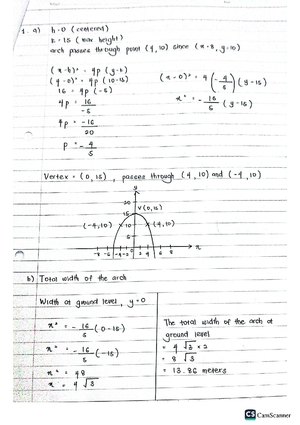 1. a) h=0 (centered)
k = 15 (max height)
arch passes through point (4,10) since (x=8, y=10)
(x-h)² = 4p (y-k)
(4-0)² = 4p (10-15)
16 = 4p (-5)
4p = 16/-5
4p = -16/20
p = -4/5
(x-0)² = 4(-4/5)(y-15)
x² = -16/5 (y-15)
Vertex = (0,15), passes through (4,10) and (-4,10)
y
20
15
V(0,15)
(-4,10)
10
(4,10)
5
-8 -6 -4 -2 0 2 4 6 8 x
b) Total width of the arch
Width at ground level, y=0
x² = -16/5 (0-15)
x² = -16/5 (-15)
x² = 48
x = 4√3
The total width of the arch at
ground level
= 4√3 × 2
= 8√3
= 13.86 meters
CS CamScanner